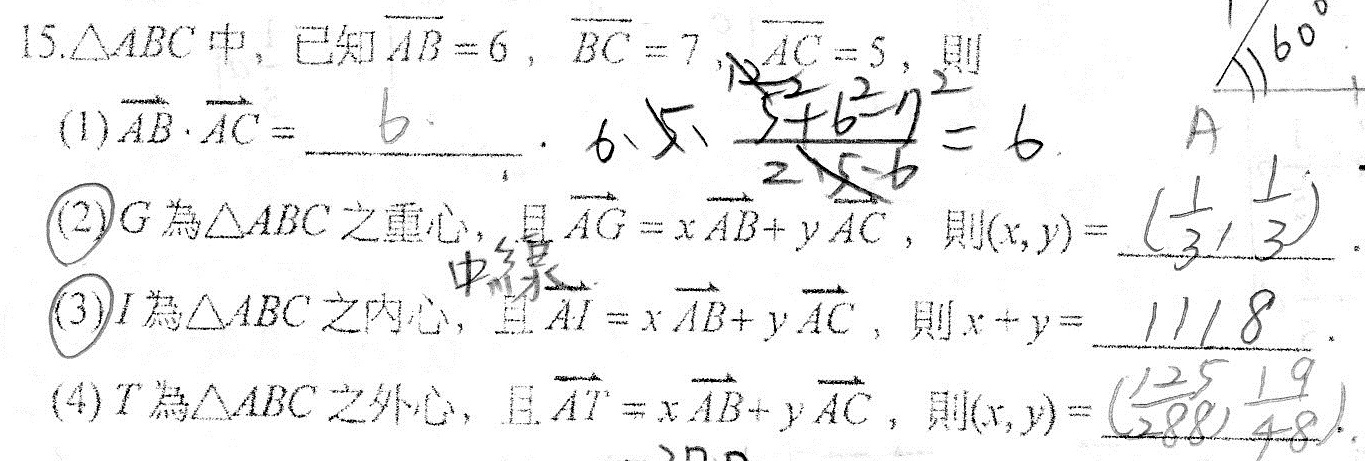 15.△ABC 中，已知 AB = 6，BC = 7，AC = 5，則
(1) AB · AC = 6 . 6、5、 5²+6²-7² / 2·5·6 = 6
60° A
(2) G 為△ABC 之重心，且 AG = x AB + y AC，則(x, y) = (1/3, 1/3) .
中線
(3) I 為△ABC 之內心，且 AI = x AB + y AC，則 x + y = 11/18 .
(4) T 為△ABC 之外心，且 AT = x AB + y AC，則(x, y) = (125/288, 19/48) .